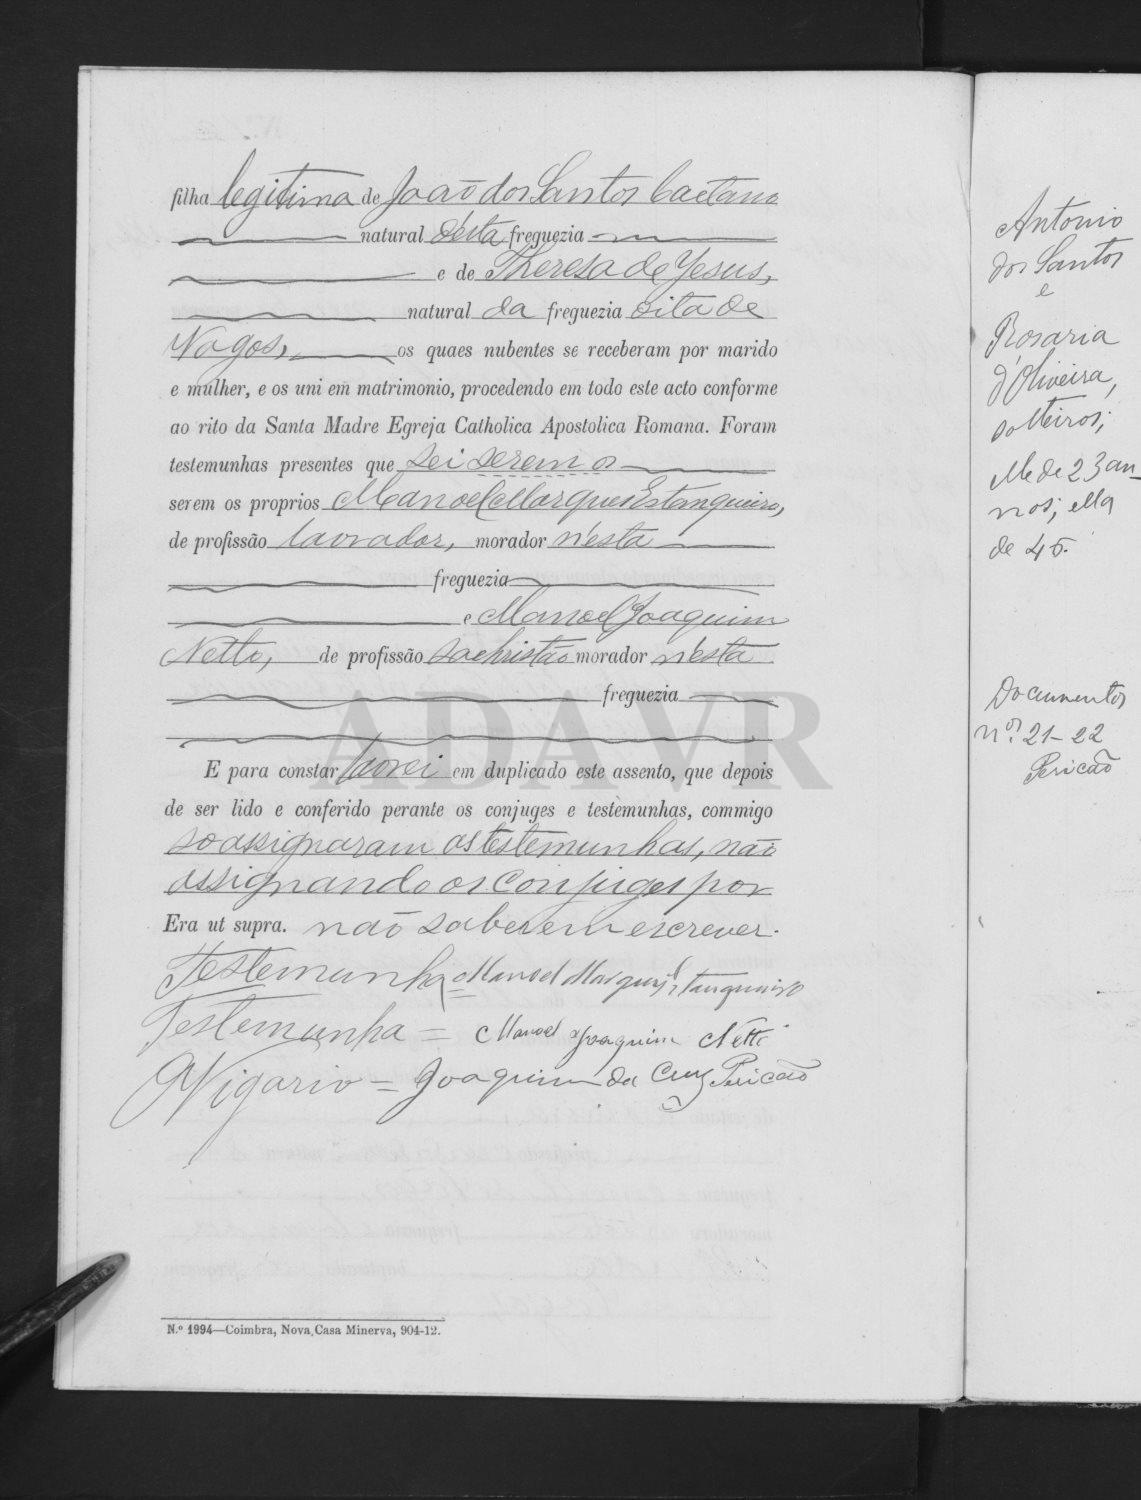 filha legitima de João dos Santos Caetano
natural d'esta freguezia
e de Theresa de Jesus,
natural da freguezia dita de
Vagos, os quaes nubentes se receberam por marido
e mulher, e os uni em matrimonio, procedendo em todo este acto conforme
ao rito da Santa Madre Egreja Catholica Apostolica Romana. Foram
testemunhas presentes que sei serem os
serem os proprios Manoel Marques Estanqueiro,
de profissão lavrador, morador n'esta
freguezia
e Manoel Joaquim
Netto, de profissão sachristão morador n'esta
freguezia
ADAVR
E para constar lavrei em duplicado este assento, que depois
de ser lido e conferido perante os conjuges e testemunhas, commigo
so assignaram as testemunhas, não
assignando os conjuges por
Era ut supra. não saberem escrever.
Testemunha = Manoel Marques Estanqueiro
Testemunha = Manoel Joaquim Netto
O Vigario = Joaquim da Cruz Pericão
N.º 1994—Coimbra, Nova Casa Minerva, 904-12.
Antonio
dos Santos
e
Rosaria
d'Oliveira,
solteiros;
elle de 23 an-
nos; ella
de 45.
Documentos
nos. 21-22
Pericão